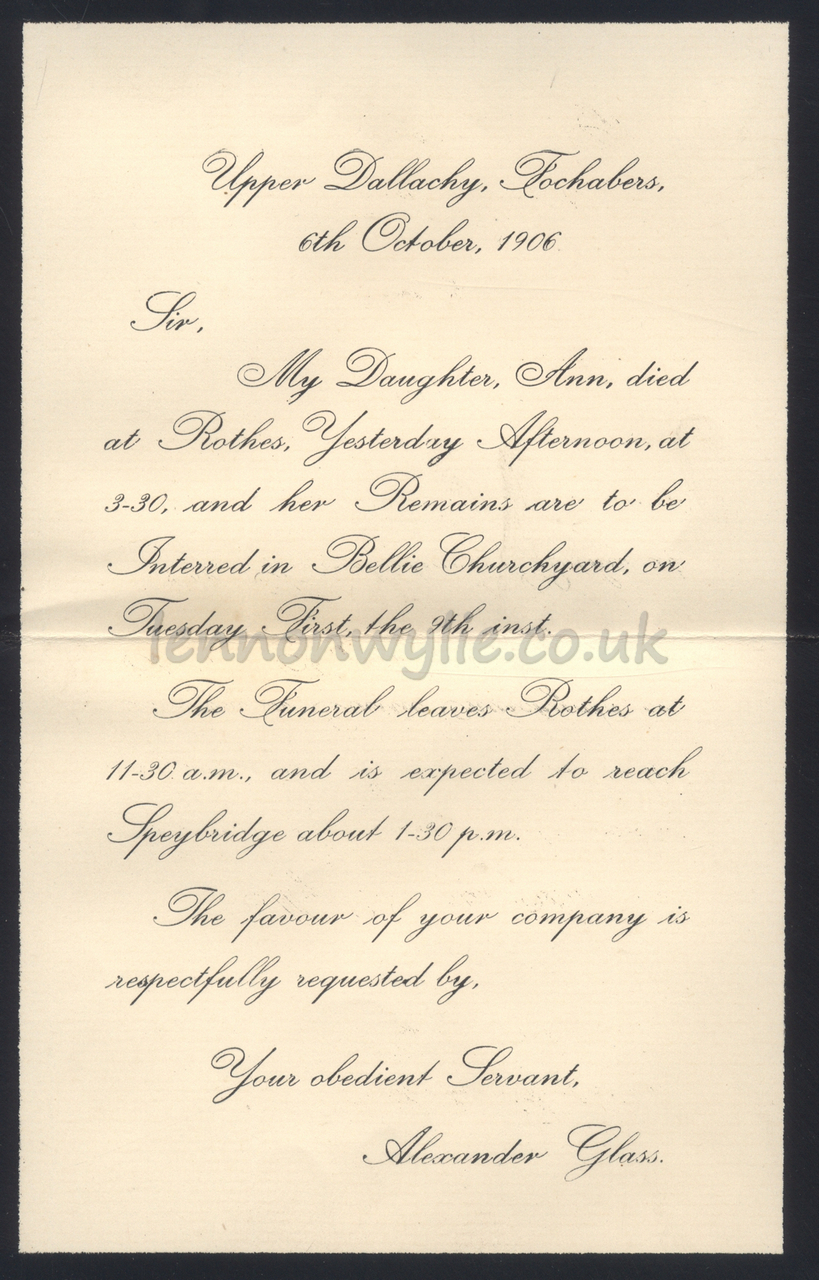 Upper Dallachy, Fochabers,
6th October, 1906.
Sir,
My Daughter, Ann, died
at Rothes, Yesterday Afternoon, at
3-30, and her Remains are to be
Interred in Bellie Churchyard, on
Tuesday First, the 9th inst.
lennonwylie.co.uk
The Funeral leaves Rothes at
11-30 a.m., and is expected to reach
Speybridge about 1-30 p.m.
The favour of your company is
respectfully requested by,
Your obedient Servant,
Alexander Glass.